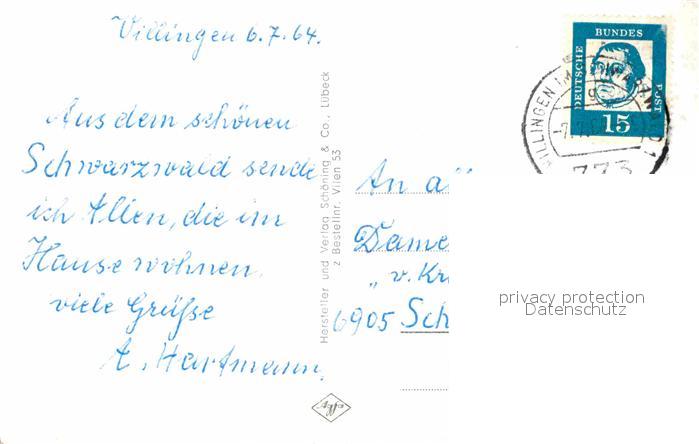 Villingen 6.7.64.
Aus dem schönen
Schwarzwald sende
ich Allen, die im
Hause wohnen
viele Grüße
A. Hartmann.
Hersteller und Verlag Schöning & Co., Lübeck
z Bestellnr. Vilen 53
An
Dame
„v. Kr
6905 Sch
DEUTSCHE
BUNDES
POST
15
VILLINGEN IM SCHWARZWALD 1
773
privacy protection
Datenschutz
Agfa